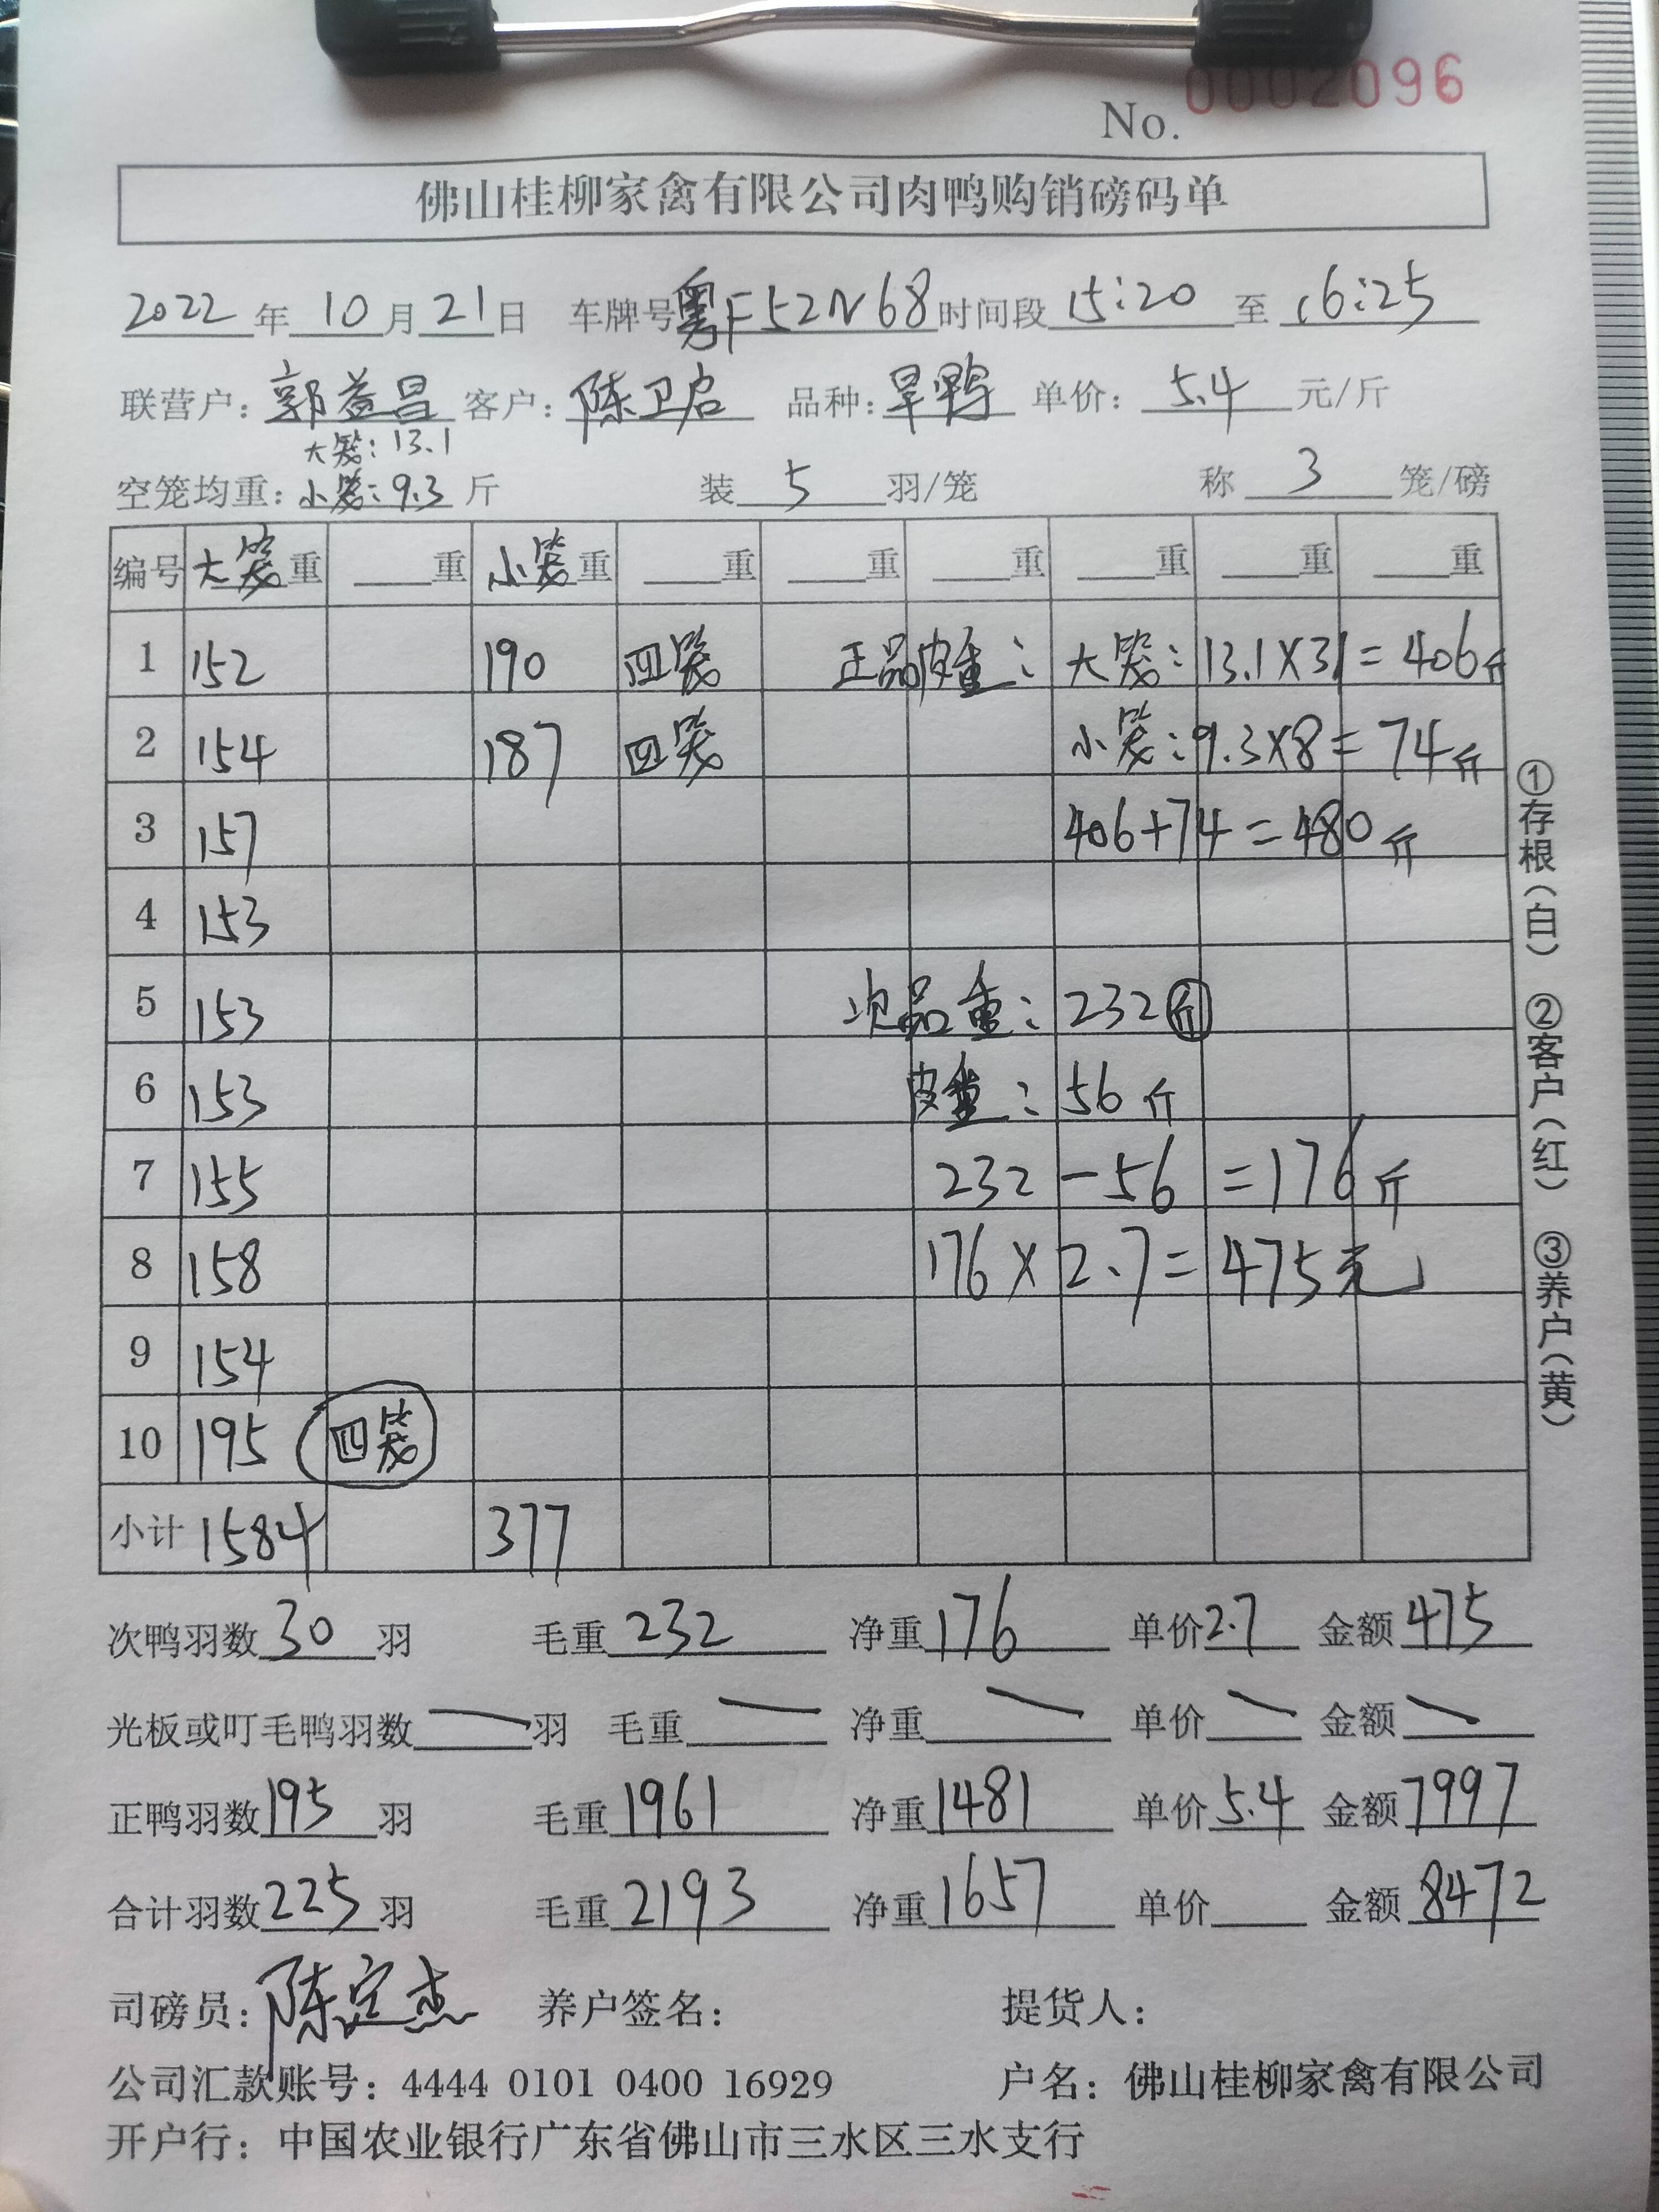 No. 0002096
佛山桂柳家禽有限公司肉鸭购销磅码单
2022年10月21日 车牌号粤F52N68时间段15:20至16:25
联营户：郭益昌 客户：陈卫启 品种：旱鸭 单价：5.4元/斤
大笼：13.1
空笼均重：小笼：9.3斤 装5羽/笼 称3笼/磅
编号 大笼重 重 小笼重 重 重 重 重 重 重
1 152 190 四笼 正品皮重：大笼：13.1×31=406斤
2 154 187 四笼 小笼：9.3×8=74斤
3 157 406+74=480斤
4 153
5 153 次品重：232斤
6 153 皮重：56斤
7 155 232-56=176斤
8 158 176×2.7=475元
9 154
10 195 四笼
小计 1584 377
次鸭羽数30羽 毛重232 净重176 单价2.7 金额475
光板或叮毛鸭羽数—羽 毛重— 净重— 单价— 金额—
正鸭羽数195羽 毛重1961 净重1481 单价5.4 金额7997
合计羽数225羽 毛重2193 净重1657 单价 金额8472
司磅员：陈定杰 养户签名： 提货人：
公司汇款账号：4444 0101 0400 16929 户名：佛山桂柳家禽有限公司
开户行：中国农业银行广东省佛山市三水区三水支行
①存根（白） ②客户（红） ③养户（黄）